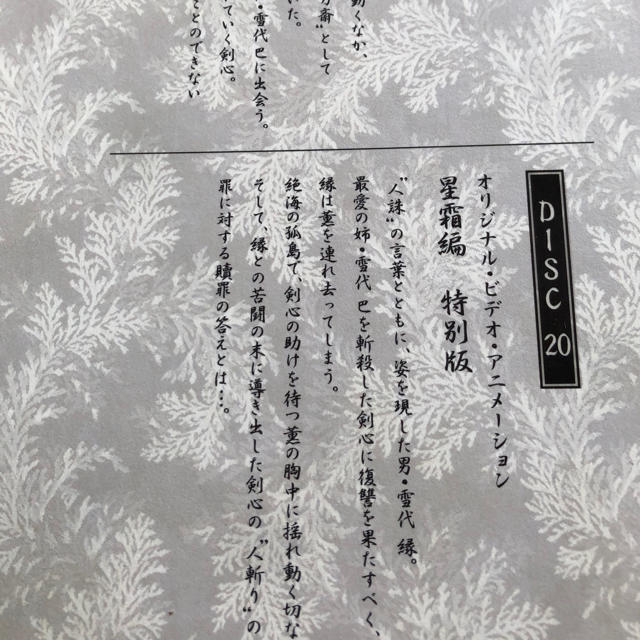 DISC 20
オリジナル・ビデオ・アニメーション
星霜編 特別版
“人誅”の言葉とともに、姿を現した男・雪代 縁。
最愛の姉・雪代 巴を斬殺した剣心に復讐を果たすべく、
縁は薫を連れ去ってしまう。
絶海の孤島で、剣心の助けを待つ薫の胸中に揺れ動く切な
そして、縁との苦闘の末に導き出した剣心の“人斬り”の
罪に対する贖罪の答えとは…。
動くなか、
斎”として
いた。
・雪代 巴に出会う。
ていく剣心。
ことのできない